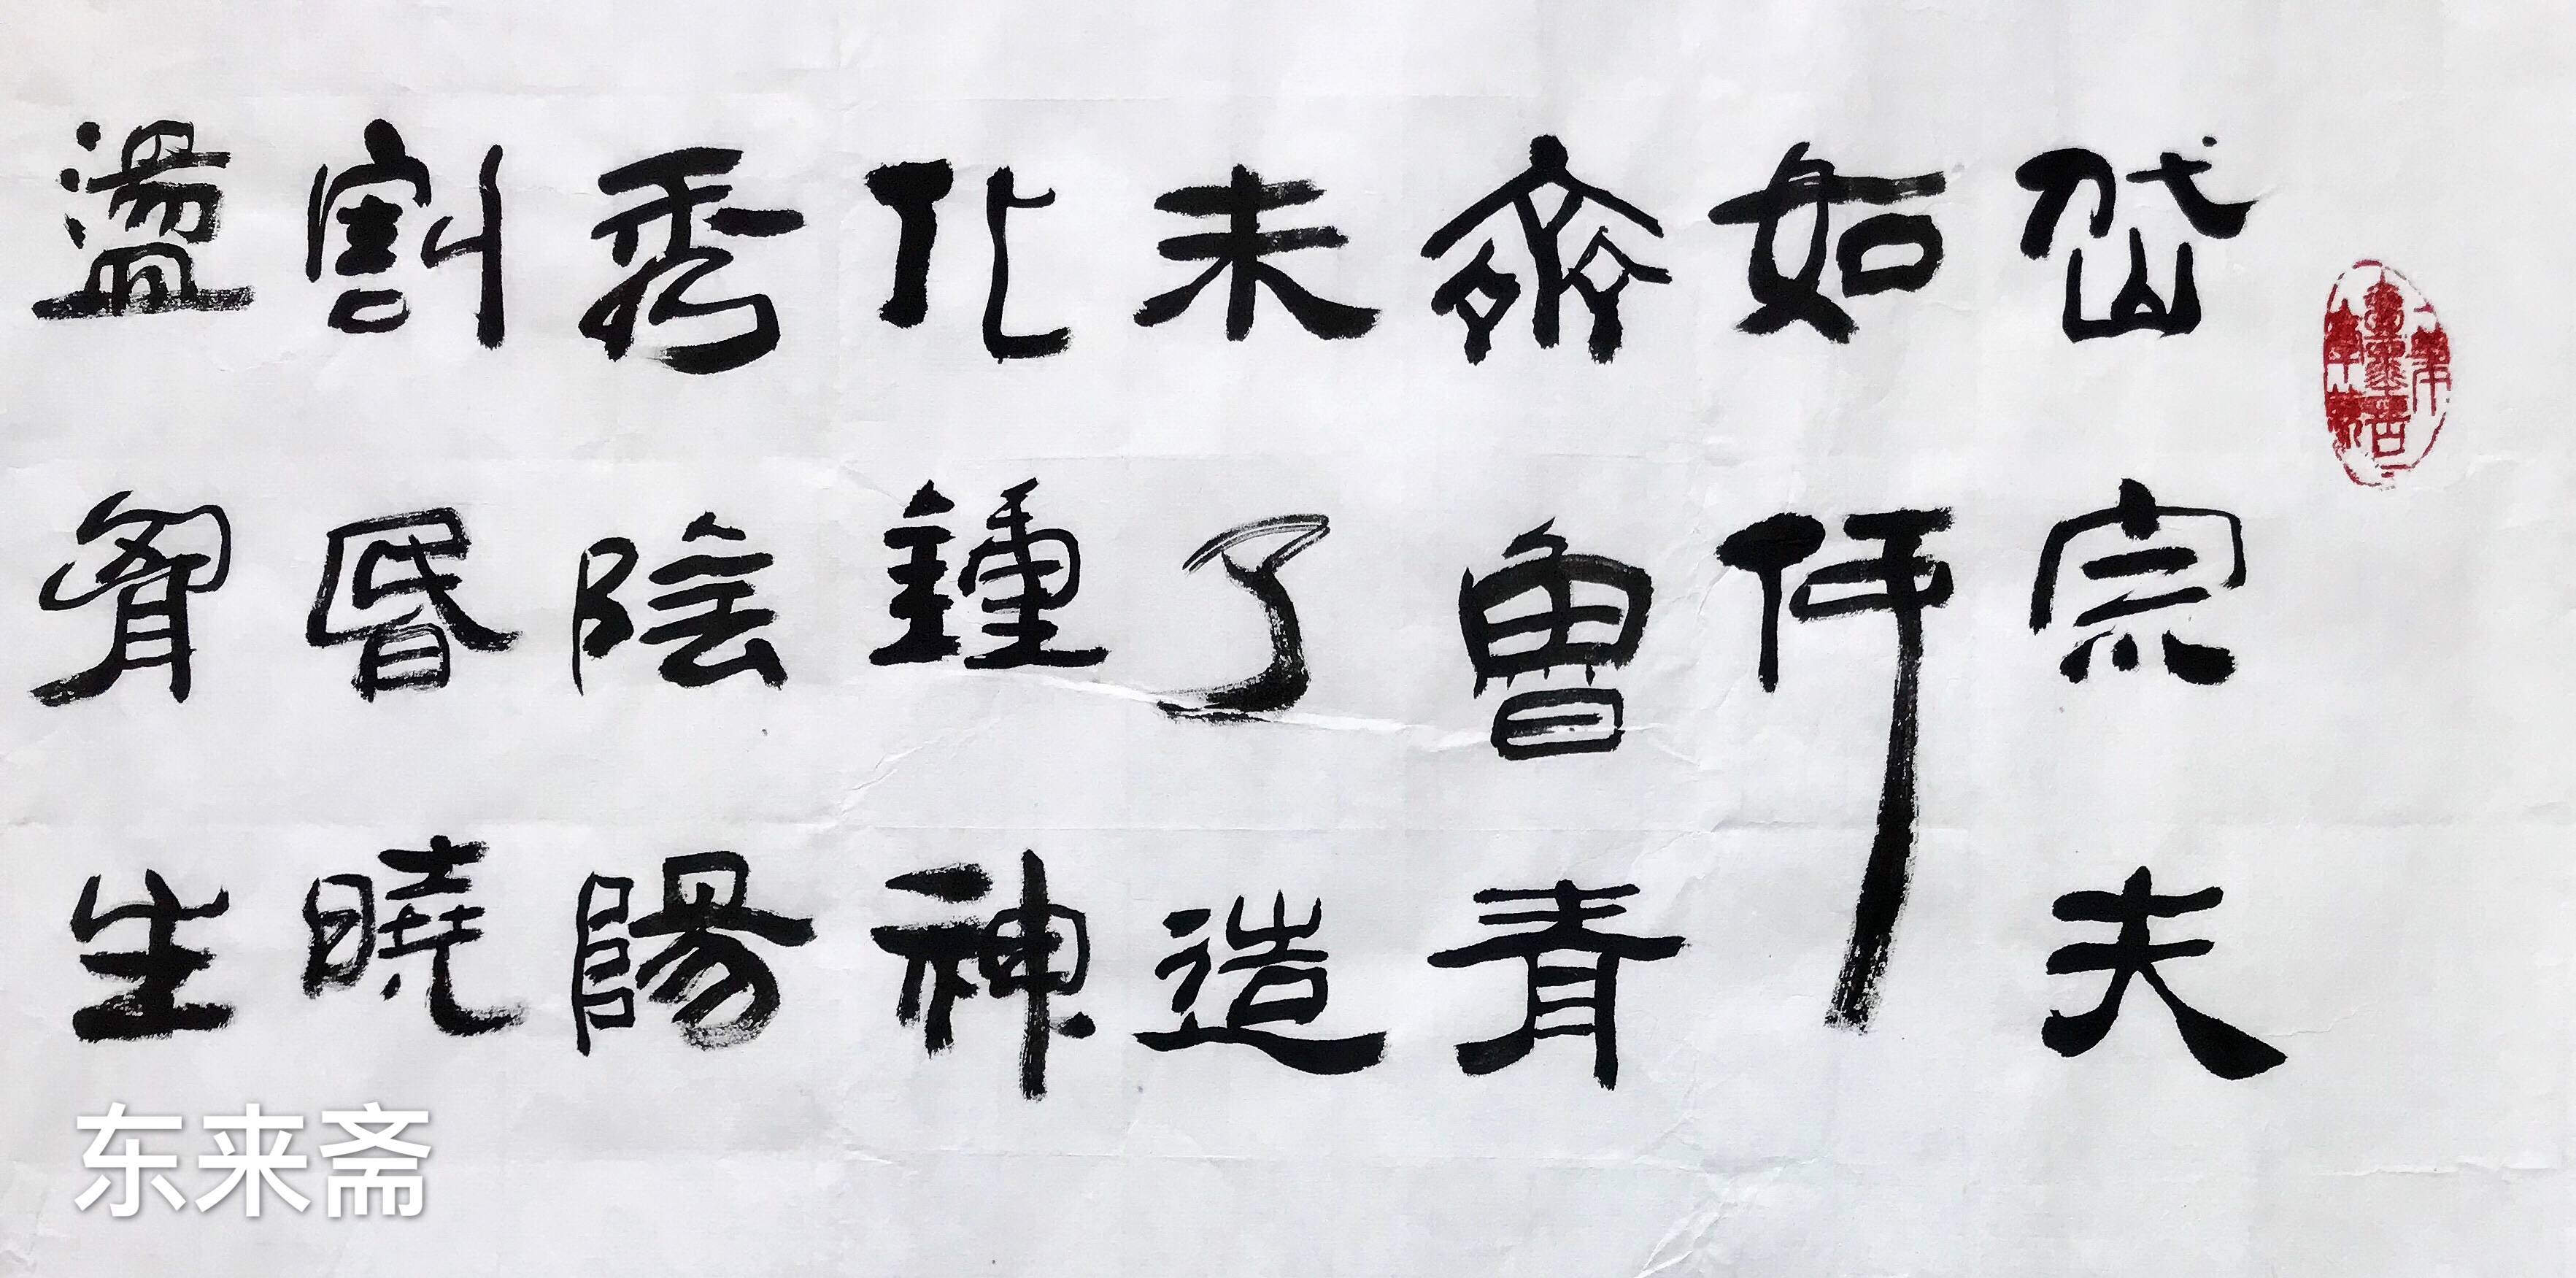 岱宗夫
如何
齊魯青
未了造
化鍾神
秀陰陽
割昏曉
盪胷生
东来斋